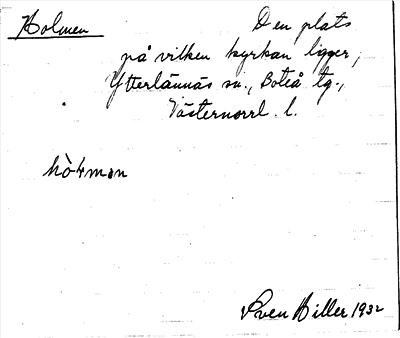 Holmen Den plats
på vilken kyrkan ligger,
Ytterlännäs sn., Boteå tg.,
Västernorrl. l.
Sven Hiller 1932